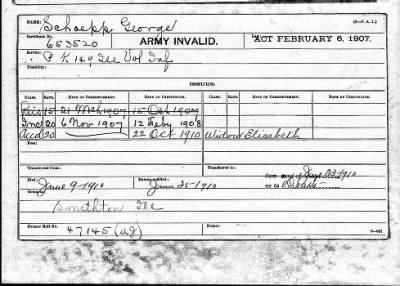 NAME: Schaepp George
Certificate No. 653520 ARMY INVALID. ACT FEBRUARY 6, 1907.
Service: P K 149 Ill Vol Inf
Disability:
ISSUES.
CLASS. RATE. DATE OF COMMENCEMENT. DATE OF CERTIFICATE. CLASS. RATE. DATE OF COMMENCEMENT. DATE OF CERTIFICATE.
Reis 15 21 Mch 1907 15 Oct
Inc 20 6 Nov 1907 12 Feby 1908
Accd 20 22 Oct 1910 Widow Elisabeth
Fees:
Transferred to:
Died June 9 - 1910 Bureau notified: June 25 - 1910
Smithton Ill
Former Roll No. 47145 (ag)